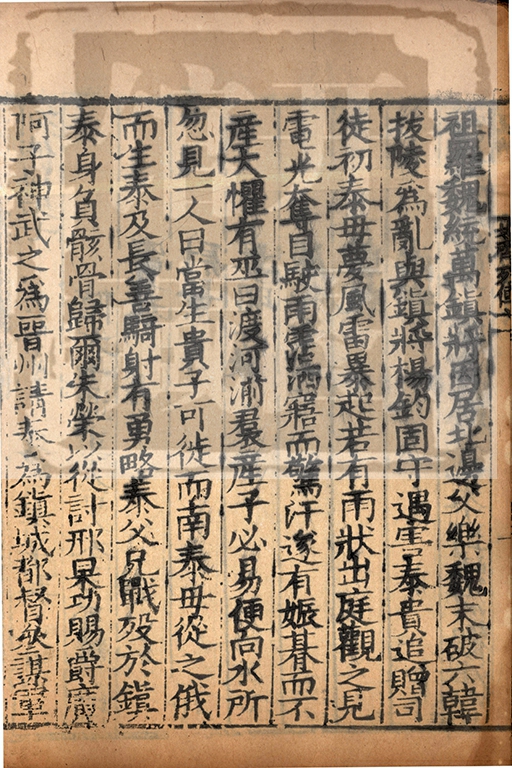 祖羅魏統萬鎮將因居北邊父樂魏末破六韓
拔陵為亂與鎮將楊鈞固守遇害泰貴追贈司
徒初泰母夢風雷暴起若有雨狀出庭觀之見
電光奪目駛雨霑洒寤而驚汗遂有娠朞而不
産大懼有巫曰渡河湔裙産子必易便向水所
忽見一人曰當生貴子可徙而南泰母從之俄
而生泰及長善騎射有勇略泰父兄戰歿於鎮
泰身負骸骨歸爾朱榮以從討邢杲功賜爵廣
阿子神武之為晉州請泰為鎮城都督參謀軍